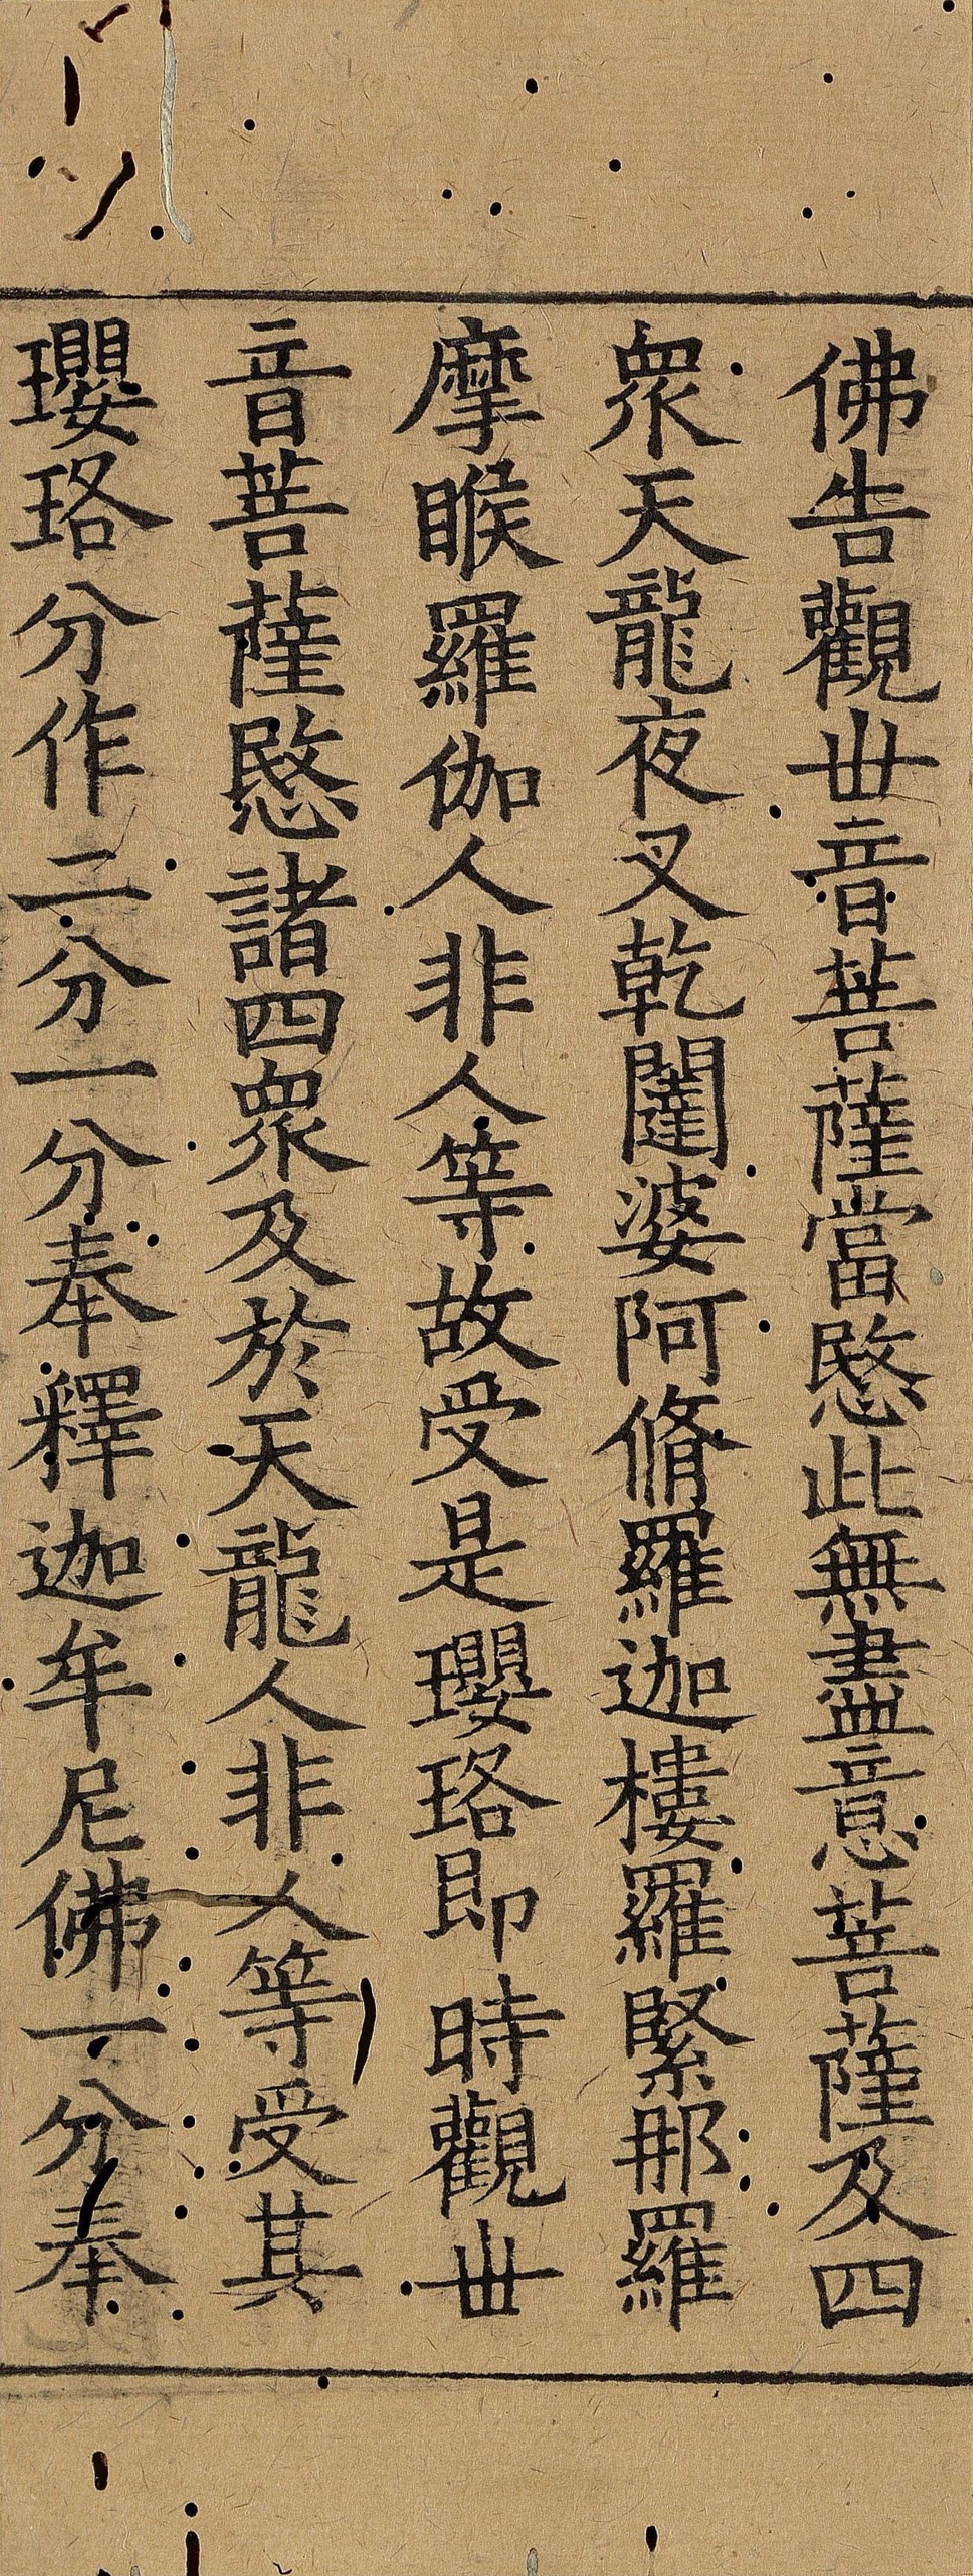 佛告觀丗音菩薩當愍此無盡意菩薩及四
衆天龍夜叉乾闥婆阿脩羅迦樓羅緊那羅
摩睺羅伽人非人等故受是瓔珞即時觀丗
音菩薩愍諸四衆及於天龍人非人等受其
瓔珞分作二分一分奉釋迦牟尼佛一分奉